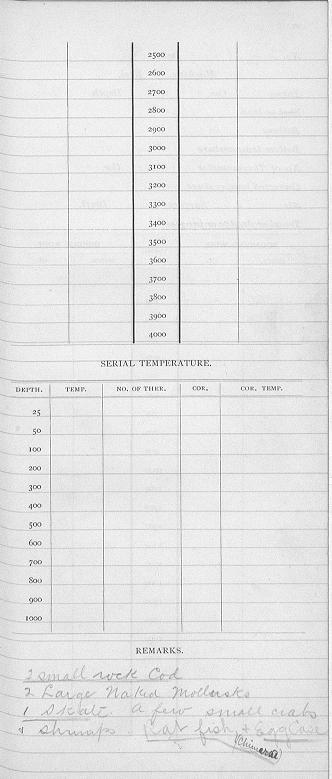 2500
2600
2700
2800
2900
3000
3100
3200
3300
3400
3500
3600
3700
3800
3900
4000
SERIAL TEMPERATURE.
DEPTH. TEMP. NO. OF THER. COR. COR. TEMP.
25
50
100
200
300
400
500
600
700
800
900
1000
REMARKS.
3 small rock Cod
2 Large Naked Mollusks
1 Skate. A few small crabs
& shrimps. Rat fish & Egg Case
(Chimera)